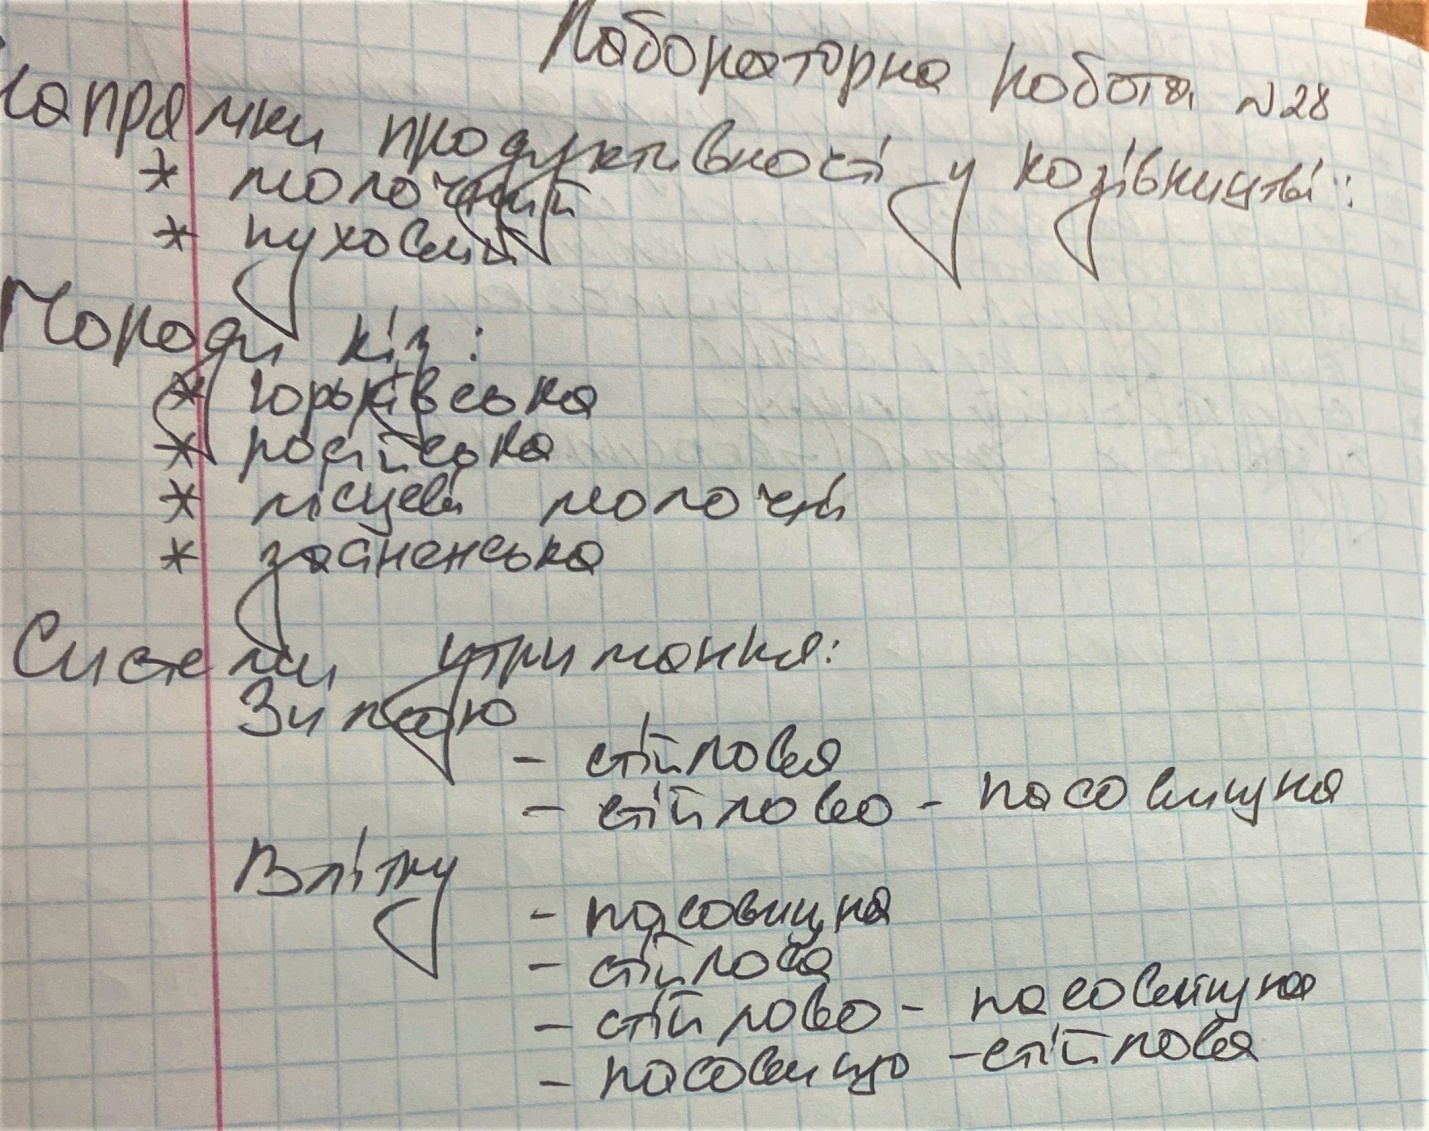 Лабораторна робота №28
Напрямки продуктивності у козівництві:
* молочний
* пуховий
Породи кіз:
* горьківська
* російська
* місцеві молочні
* зааненська
Системи утримання:
Зимою
- стійлова
- стійлово - пасовищна
Влітку
- пасовищна
- стійлова
- стійлово - пасовищна
- пасовищно - стійлова